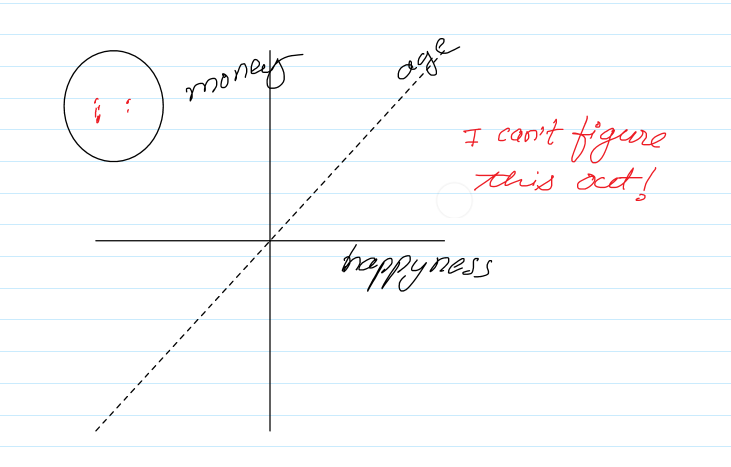 money
age
I can't figure
this out!
happyness